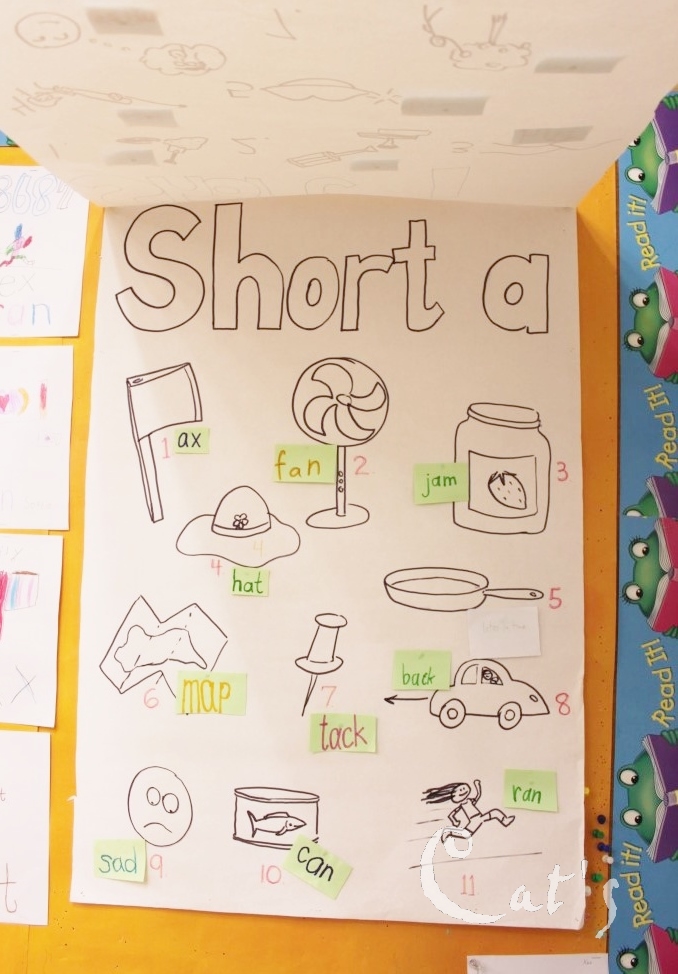 Short a
1 ax
fan 2.
jam 3
4 4
hat
5
6 map
7
tack
back 8
ran
sad 9
10. can
11
Cat's
Read it!
Read It!
Read It!
Read it!
run